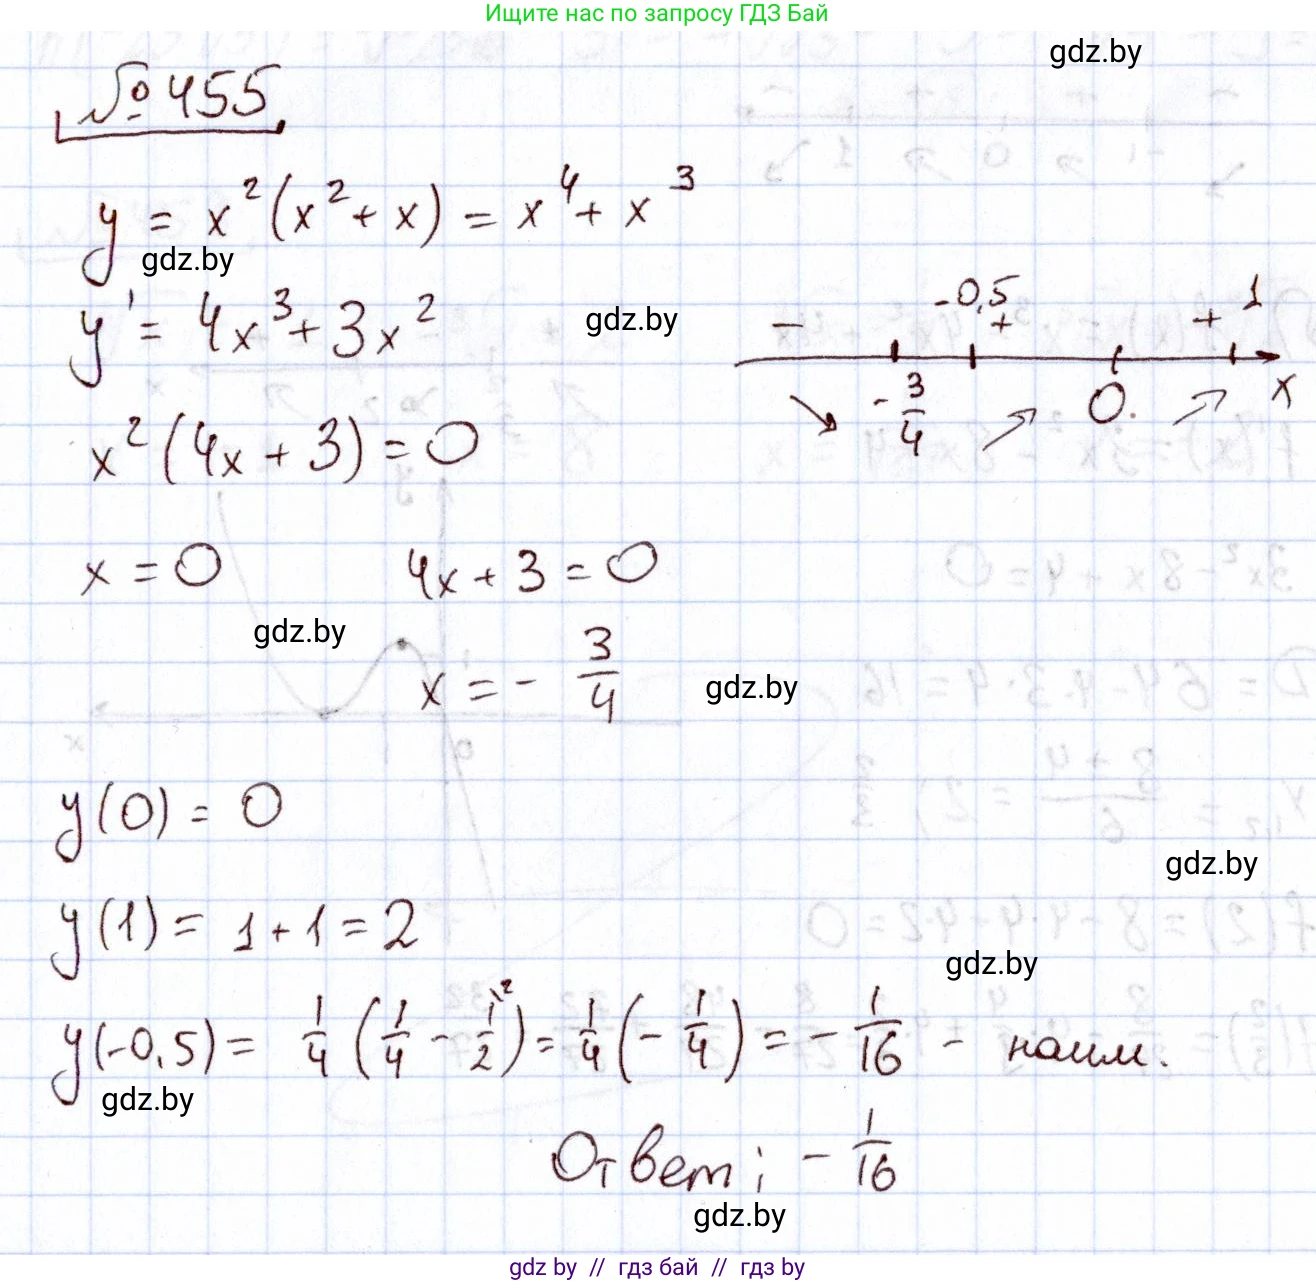 Ищите нас по запросу ГДЗ Бай
gdz.by
№ 455
y = x²(x² + x) = x⁴ + x³
gdz.by
y' = 4x³ + 3x²
gdz.by
- -0,5 + + 1
-3/4 0 x
x²(4x + 3) = 0
x = 0 4x + 3 = 0
gdz.by
x = - 3/4
gdz.by
y(0) = 0
gdz.by
y(1) = 1 + 1 = 2
gdz.by
y(-0,5) = 1/4 (1/4 - 1/2^\2) = 1/4 (- 1/4) = - 1/16 - наим.
gdz.by
Ответ: - 1/16
gdz.by
gdz by // гдз бай // гдз by